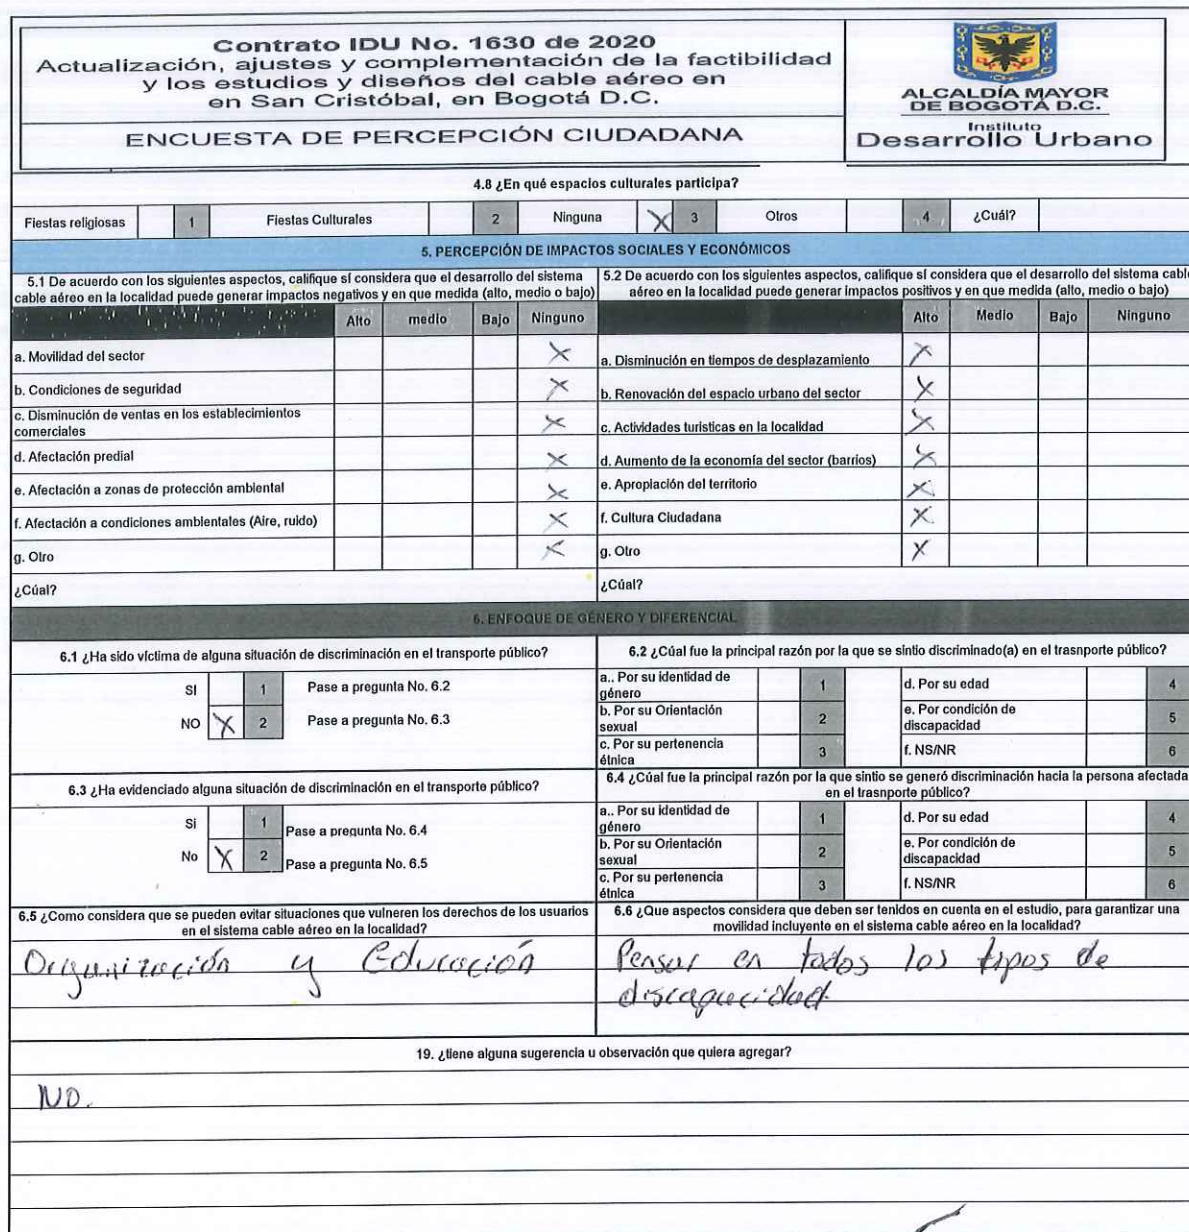 Contrato IDU No. 1630 de 2020
Actualización, ajustes y complementación de la factibilidad
y los estudios y diseños del cable aéreo en
en San Cristóbal, en Bogotá D.C.
ENCUESTA DE PERCEPCIÓN CIUDADANA
ALCALDÍA MAYOR
DE BOGOTÁ D.C.
Instituto
Desarrollo Urbano
4.8 ¿En qué espacios culturales participa?
Fiestas religiosas 1 Fiestas Culturales 2 Ninguna X 3 Otros 4 ¿Cuál?
5. PERCEPCIÓN DE IMPACTOS SOCIALES Y ECONÓMICOS
5.1 De acuerdo con los siguientes aspectos, califique sí considera que el desarrollo del sistema
cable aéreo en la localidad puede generar impactos negativos y en que medida (alto, medio o bajo)
Alto medio Bajo Ninguno
a. Movilidad del sector X
b. Condiciones de seguridad X
c. Disminución de ventas en los establecimientos
comerciales X
d. Afectación predial X
e. Afectación a zonas de protección ambiental X
f. Afectación a condiciones ambientales (Aire, ruido) X
g. Otro X
¿Cúal?
5.2 De acuerdo con los siguientes aspectos, califique sí considera que el desarrollo del sistema cable
aéreo en la localidad puede generar impactos positivos y en que medida (alto, medio o bajo)
Alto Medio Bajo Ninguno
a. Disminución en tiempos de desplazamiento X
b. Renovación del espacio urbano del sector X
c. Actividades turisticas en la localidad X
d. Aumento de la economía del sector (barrios) X
e. Apropiación del territorio X
f. Cultura Ciudadana X
g. Otro X
¿Cúal?
6. ENFOQUE DE GÉNERO Y DIFERENCIAL
6.1 ¿Ha sido víctima de alguna situación de discriminación en el transporte público?
SI 1 Pase a pregunta No. 6.2
NO X 2 Pase a pregunta No. 6.3
6.2 ¿Cúal fue la principal razón por la que se sintio discriminado(a) en el trasnporte público?
a.. Por su identidad de
género 1 d. Por su edad 4
b. Por su Orientación
sexual 2 e. Por condición de
discapacidad 5
c. Por su pertenencia
étnica 3 f. NS/NR 6
6.3 ¿Ha evidenciado alguna situación de discriminación en el transporte público?
Si 1 Pase a pregunta No. 6.4
No X 2 Pase a pregunta No. 6.5
6.4 ¿Cúal fue la principal razón por la que sintio se generó discriminación hacia la persona afectada
en el trasnporte público?
a.. Por su identidad de
género 1 d. Por su edad 4
b. Por su Orientación
sexual 2 e. Por condición de
discapacidad 5
c. Por su pertenencia
étnica 3 f. NS/NR 6
6.5 ¿Como considera que se pueden evitar situaciones que vulneren los derechos de los usuarios
en el sistema cable aéreo en la localidad?
Organización y Educación
6.6 ¿Que aspectos considera que deben ser tenidos en cuenta en el estudio, para garantizar una
movilidad incluyente en el sistema cable aéreo en la localidad?
Pensar en todos los tipos de
discapacidad.
19. ¿tiene alguna sugerencia u observación que quiera agregar?
NO.